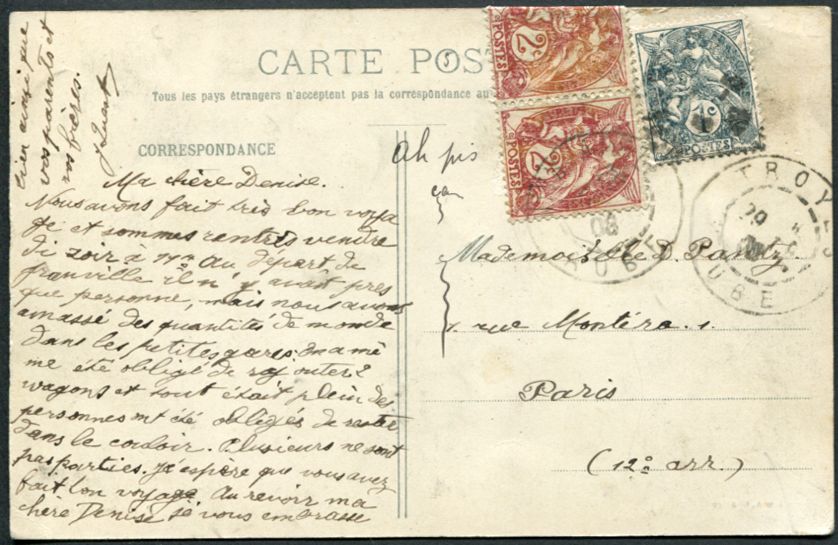 CARTE POS
Tous les pays étrangers n'acceptent pas la correspondance au
CORRESPONDANCE
Ma chère Denise.
Nous avons fait très bon voya
ge et sommes rentrés vendre
di soir à 11h Au départ de
Granville il n'y avait pres
que personne, mais nous avons
amassé des quantités de monde
dans les petites gares. on a mê
me été obligé de raj outer 2
wagons et tout était plein des
personnes ont été obligés de reste
dans le couloir. Plusieurs ne sont
pas parties. J'espère que vous avez
fait bon voyage. Au revoir ma
chère Denise je vous embrasse
bien ainsi que
vos parents et
vos frères.
2c
POSTES
2c
POSTES
1c
POSTES
TROYES
AUBE
29
06
AUBE
Mademoiselle D. Pantz
1. rue Montéra. 1.
Paris
(12e arr.)